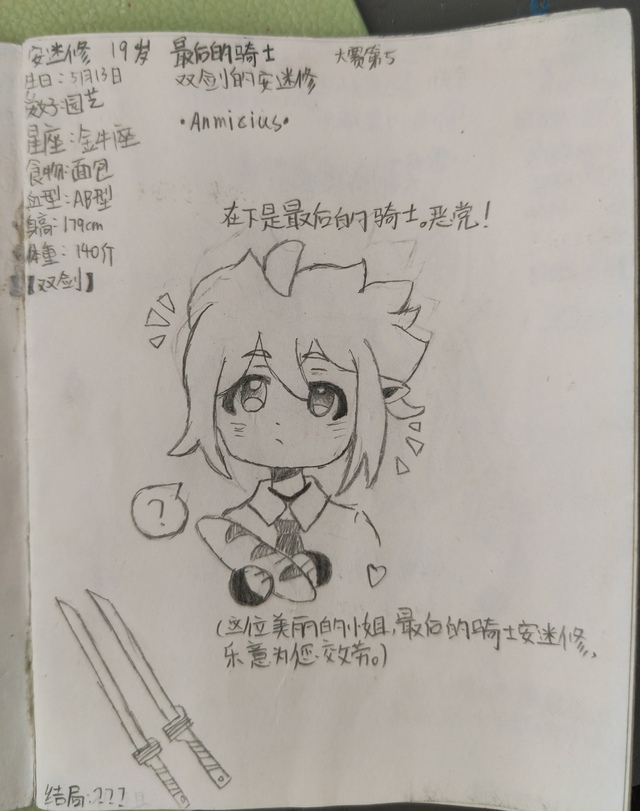 安迷修 19岁 最后的骑士 大赛第5
生日：5月13日 双剑的安迷修
爱好：园艺 ·Anmicius·
星座：金牛座
食物：面包
血型：AB型
身高：179cm
体重：140斤
【双剑】
在下是最后的骑士。恶党！
?
(这位美丽的小姐,最后的骑士安迷修,
乐意为您效劳。)
结局：???